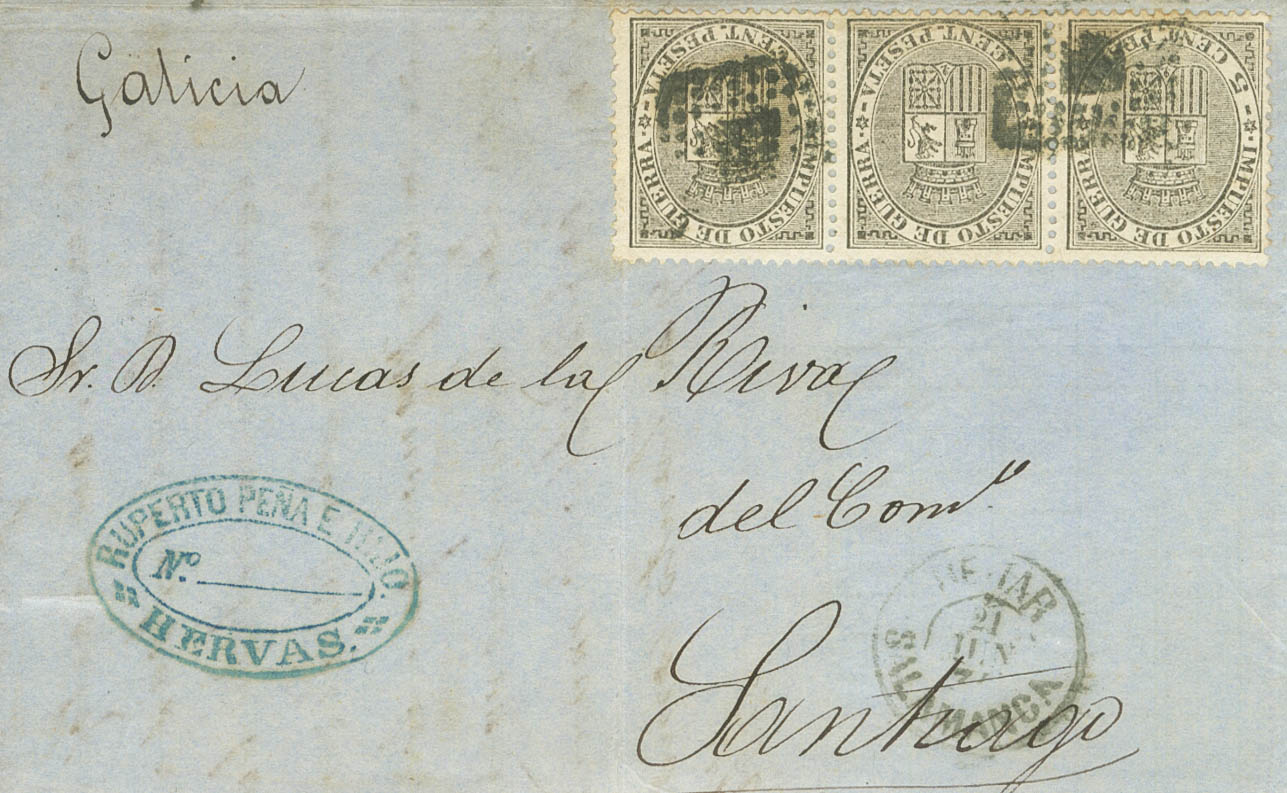 Galicia
IMPUESTO DE GUERRA 5 CENT. PESETA
IMPUESTO DE GUERRA CENT. PESETA
IMPUESTO DE GUERRA CENT. PESETA
Sr. D. Lucas de la Riva
del Com.º
Santiago
RUPERTO PEÑA E HIJO.
Nº.
HERVAS.
BEJAR
21
JUN
SALAMANCA